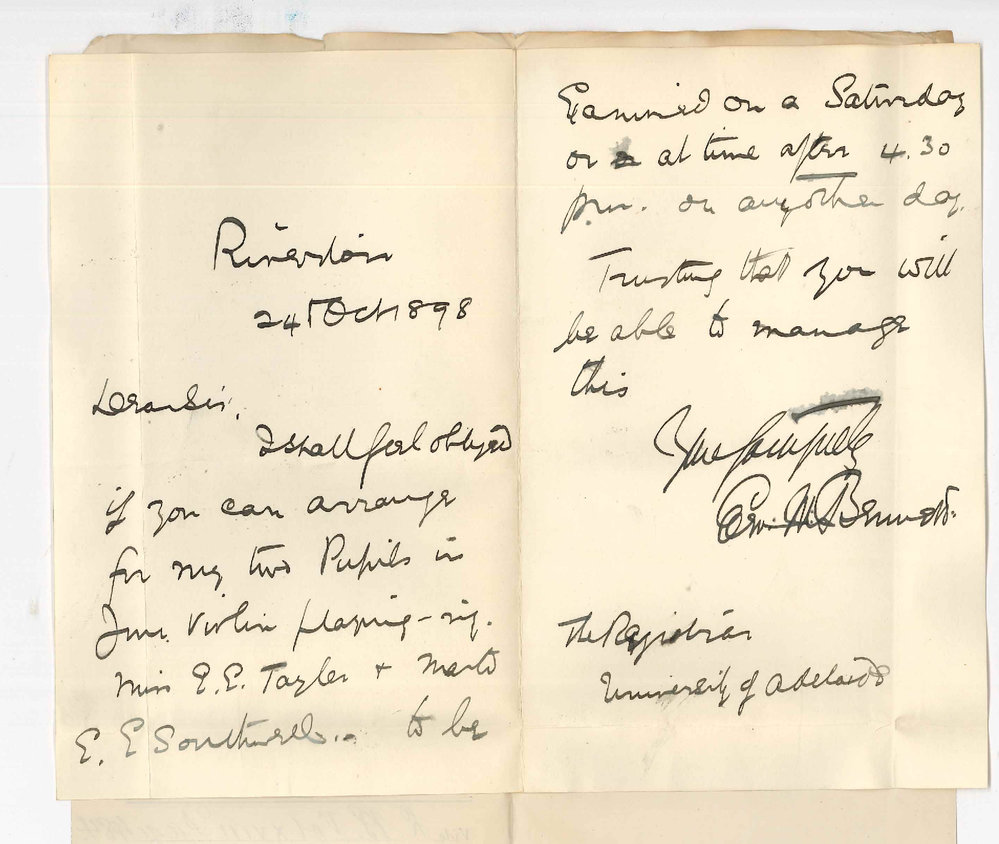 Riverton
24th Oct 1898
Dear Sir,
I shall feel obliged
if you can arrange
for my two Pupils in
Junr. Violin playing – viz.
Miss E.E. Tayler + Mast.
E. E Southwell.. to be
Examined on a Saturday
or at time after 4.30
p.m. on any other day.
Trusting that you will
be able to manage
this
Yrs
Edw. H. Bennett.
The Registrar
University of Adelaide